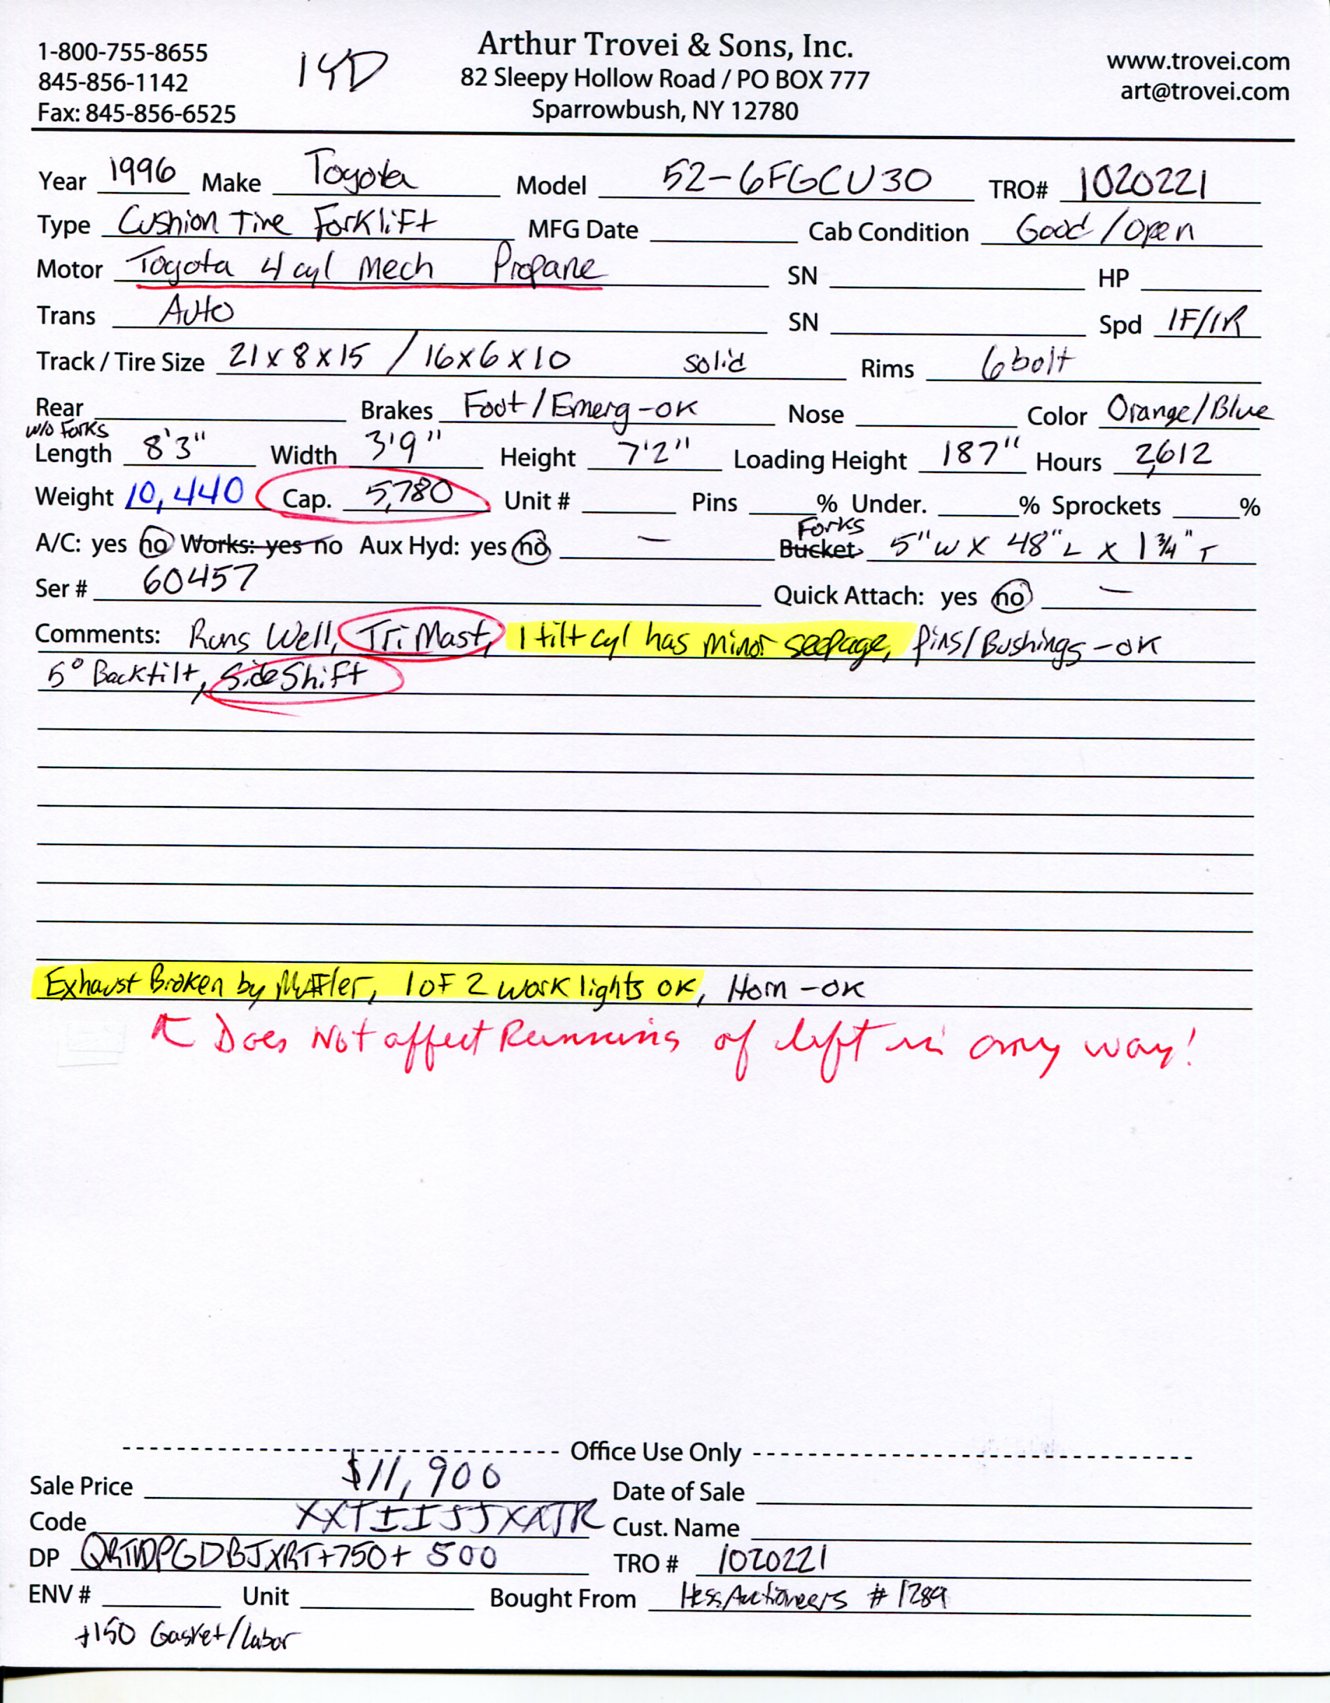 1-800-755-8655
845-856-1142
Fax: 845-856-6525
1YD
Arthur Trovei & Sons, Inc.
82 Sleepy Hollow Road / PO BOX 777
Sparrowbush, NY 12780
www.trovei.com
art@trovei.com
Year 1996 Make Toyota Model 52-6FGCU30 TRO# 1020221
Type Cushion Tire Forklift MFG Date Cab Condition Good/open
Motor Toyota 4 cyl Mech Propane SN HP
Trans Auto SN Spd 1F/1R
Track / Tire Size 21x8x15 / 16x6x10 solid Rims 6 bolt
Rear Brakes Foot/Emerg-ok Nose Color Orange/Blue
w/o Forks
Length 8'3" Width 3'9" Height 7'2" Loading Height 187" Hours 2,612
Weight 10,440 Cap. 5,780 Unit # Pins % Under. % Sprockets %
A/C: yes no Works: yes no Aux Hyd: yes no — Bucket Forks 5"W X 48"L X 1 3/4"T
Ser # 60457 Quick Attach: yes no —
Comments: Runs Well, Tri Mast, 1 tilt cyl has minor seepage, pins/Bushings-ok
5° Backtilt, SideShift
Exhaust Broken by Muffler, 1 of 2 work lights ok, Horn-ok
Does Not affect Running of lift in any way!
Office Use Only
Sale Price $11,900 Date of Sale
Code Cust. Name
DP +750+ 500 TRO # 1020221
ENV # Unit Bought From Hess Auctioneers #1289
+150 Gasket/Labor